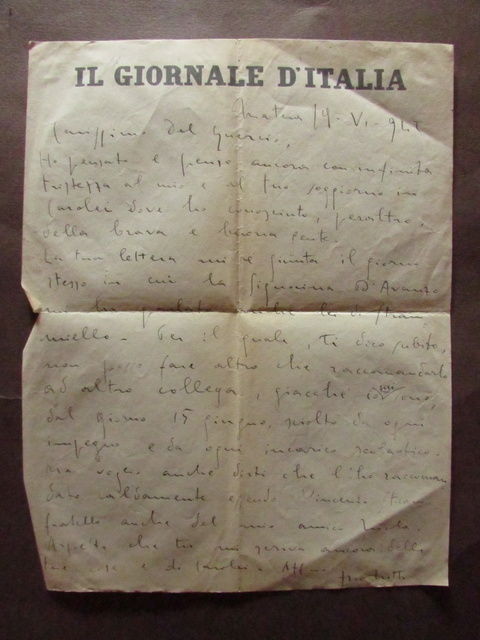 IL GIORNALE D'ITALIA
Matera 19-VI-94
Carissimo Del Guercio,
Ho pensato e penso ancora con infinita
tristezza al mio e al tuo soggiorno in
dove ho conosciuto, peraltro,
della brava e buona gente.
La tua lettera mi è giunta il giorno
stesso in cui la Signorina D'Avanzo
mi ha parlato anche lei di
miello. Per il quale, ti dico subito,
non posso fare altro che raccomandarlo
ad altro collega, giacché io sono,
dal giorno 15 giugno, sciolto da ogni
impegno e da ogni incarico scolastico.
Ma voglio anche dirti che l'ho raccoman
dato caldamente essendo Vincenzo
fratello anche del mio amico
Aspetto che tu mi scriva ancora delle
tue cose e di Aff.mo